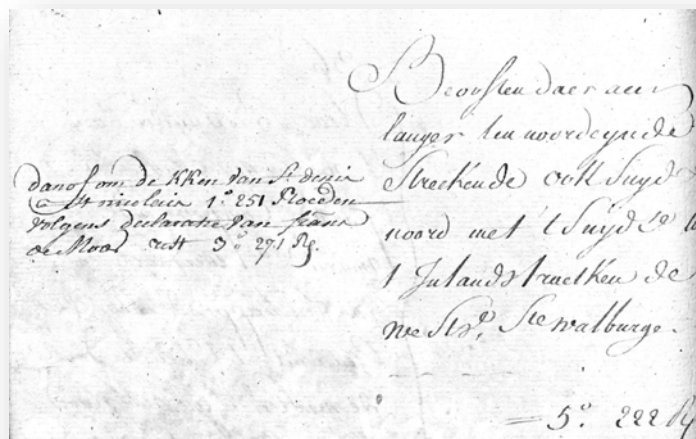 danof om de KKen van St denis
& St nicolais 1.° 251 Roeden
volgens declaratie van frans
de Moor rest 3° 271 R.
Beoosten daer aen
langer ten noordeynde
Streckende ook Suyd
noord met 't Suyd
t Jnlandstraetken de
west Ste walburge.
= 5°. 222 R